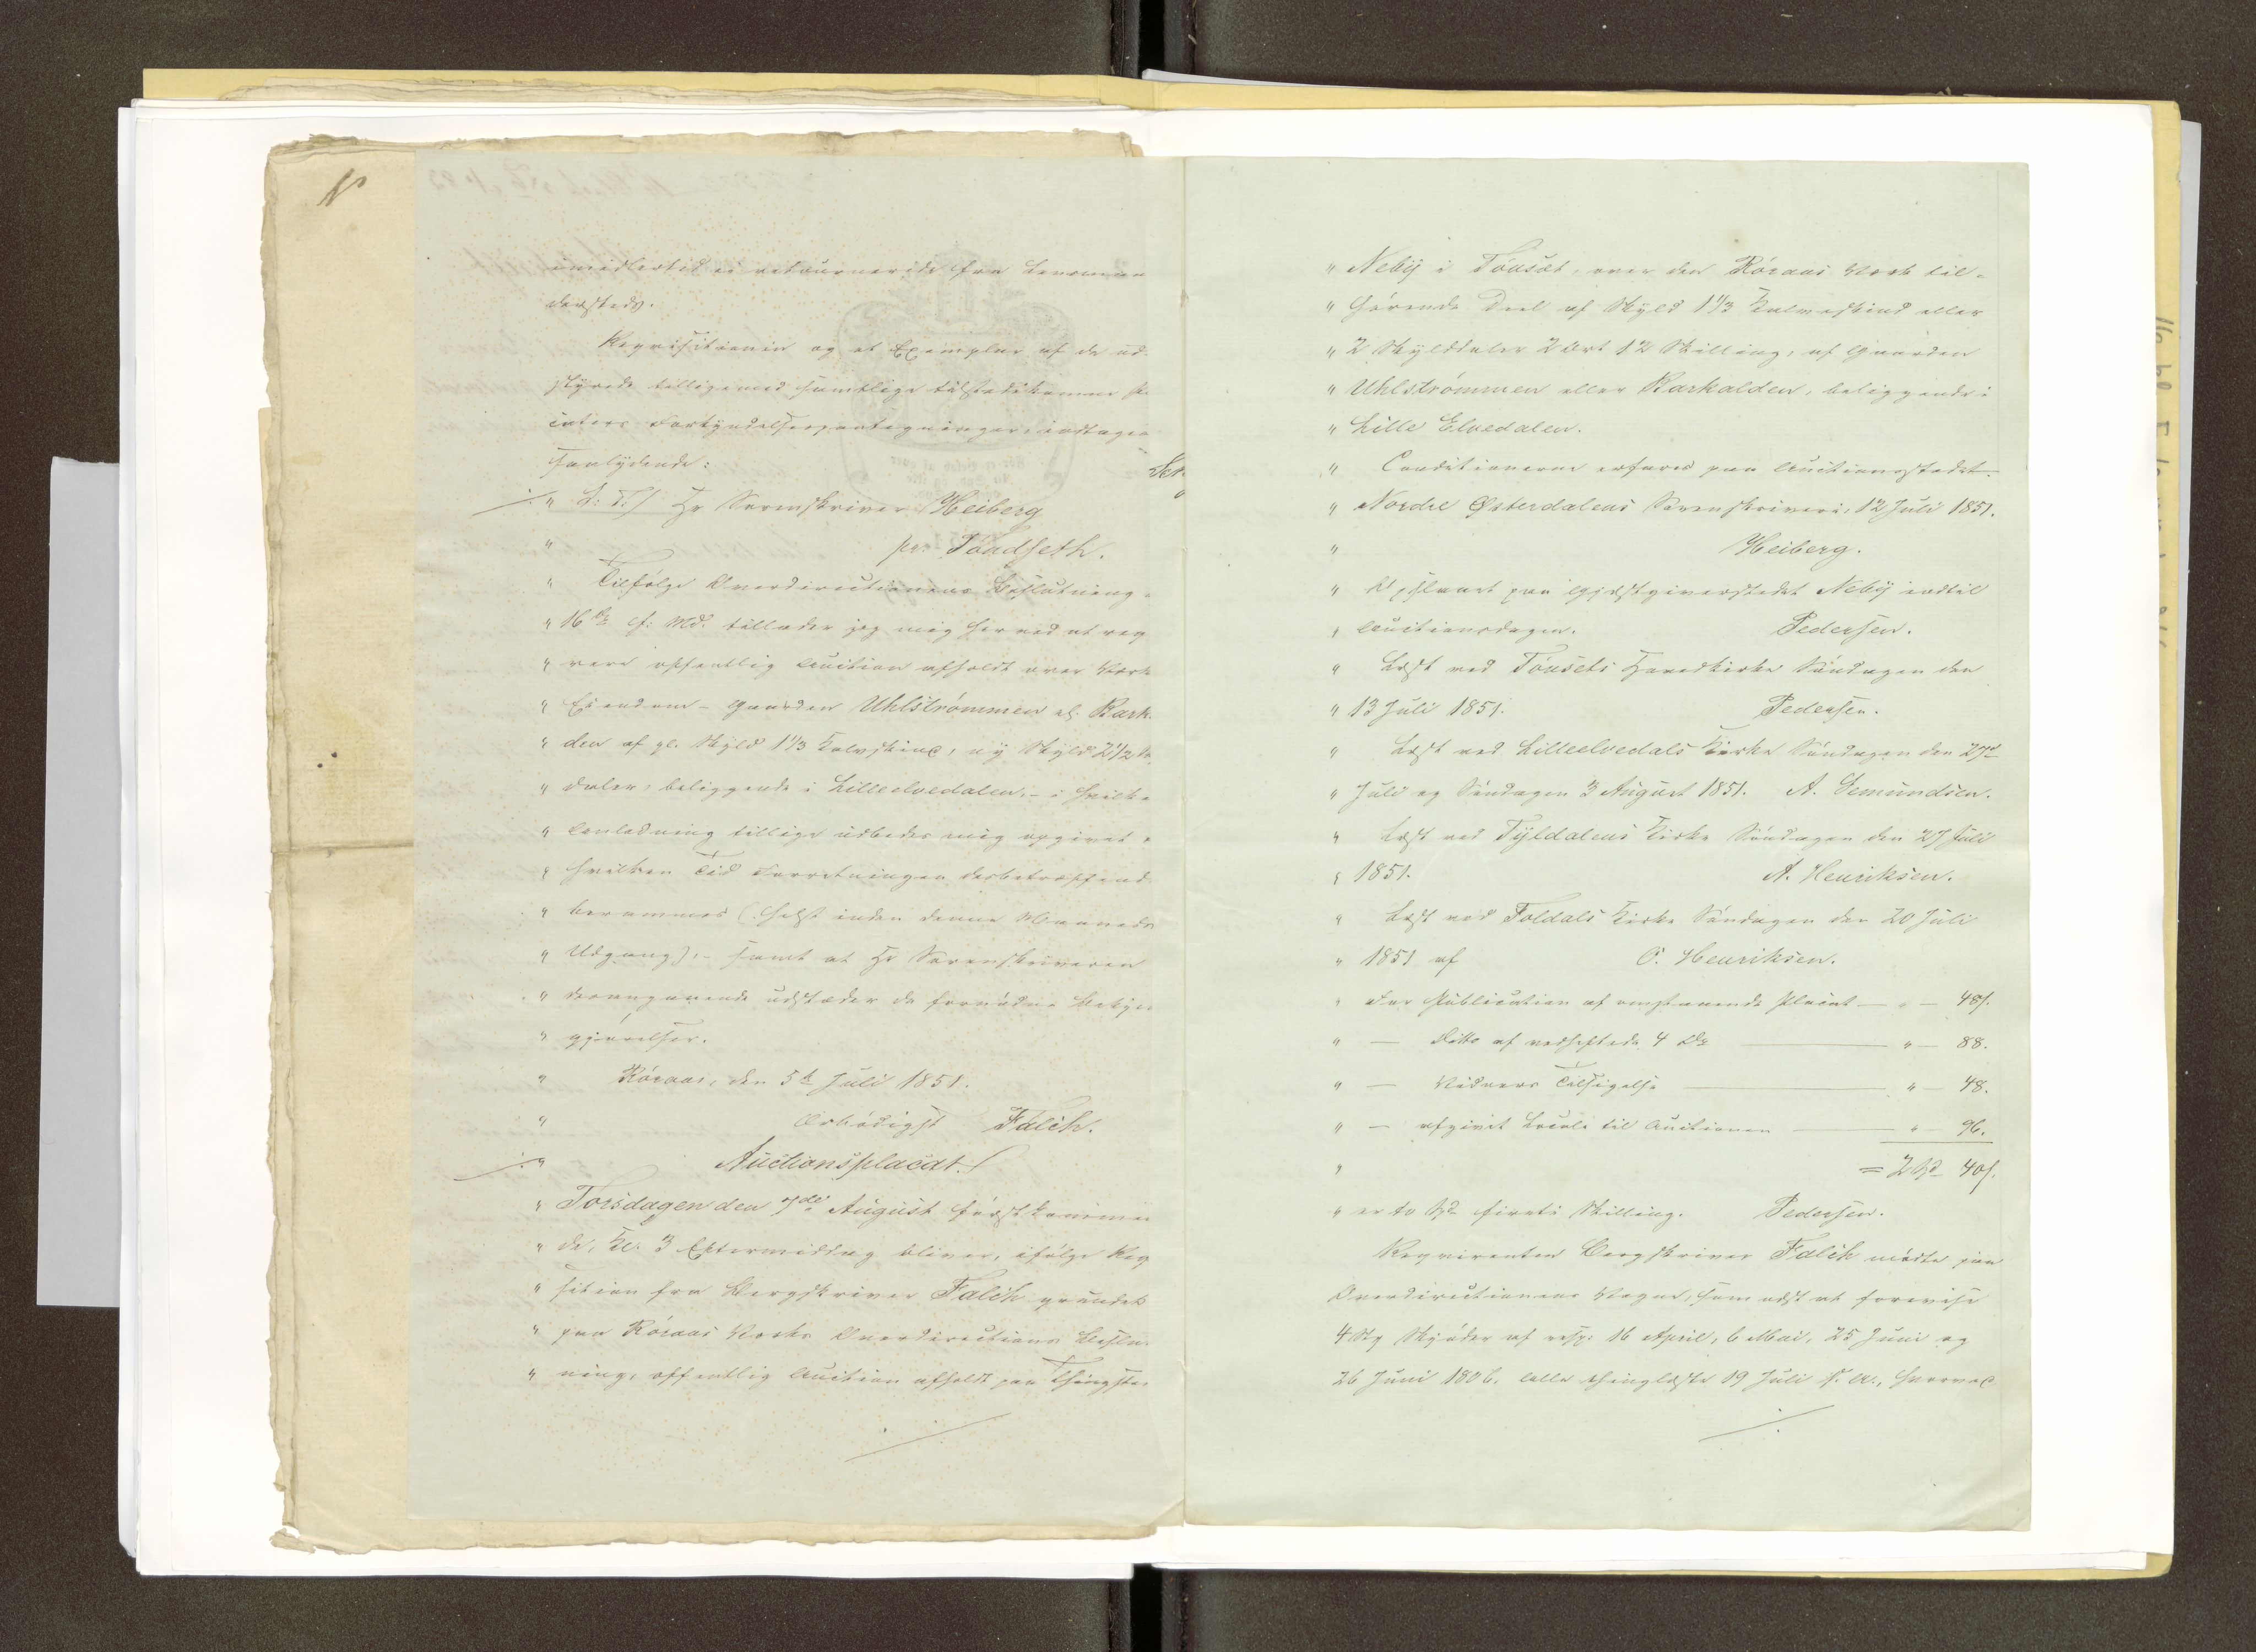 imidlertid ei retournerede fra Lensmanden
dersteds.
Reqvisitionen og et Exemplar af de ud-
styrede tilligemed samtlige tilstedekomne Pla-
caters Forkyndelsespaategninger indtages
saalydende:
"S: T:/ Hr Sorenskriver Heiberg
" pr: Töndseth.
" Tilfölge Overdirectionens Beslutning
" 16de f: Md. tillader jeg mig herved at req
" rere offentlig Auction afholdt over Værk
" Eiendom - Gaarden Uhlströmmen el. Bark-
" den af gl. Skyld 1 1/3 Kalvskind, ny Skyld 2 1/2
" daler, beliggende i Lilleelvedalen, - i hvilke
" Anledning tillige udbedes mig opgivet
" hvilken Tid Forretningen desbetræffende
" berammes (helst inden denne Maaneds
" Udgang), - samt at Hr Sorenskriveren
" derangaaende udstæder de fornødne Bekjendt
" gjørelser.
" Röraas, den 5te Juli 1851.
" Ærbödigst Falch.
" Auctionsplacat./
" Torsdagen den 7de August förstkommen
" de, Kl. 3 Eftermiddag bliver, ifölge Reqvi
" sition fra Bergskriver Falch grundet
" paa Röraas Værks Overdirections Beslut
" ning, offentlig Auction afholdt paa Thingste
" Neby i Tönset, over den Röraas Værk til-
" hörende Deel af Skyld 1 1/3 Kalveskind eller
" 2 Skylddaler 2 Ort 12 Skilling, af Gaarden
" Uhlströmmen eller Barkalden, beliggende i
" Lille Elvedalen.
" Conditionerne erfares paa Auctionsstedet.
" Nordre Østerdalens Sorenskriveri, 12 Juli 1851.
" Heiberg.
" Opslaaet paa Gjæstgiverstedet Neby indtil
" Auctionsdagen. Pedersen.
" Læst ved Tönsets Hovedkirke Söndagen den
" 13 Juli 1851. Pedersen.
" Læst ved Lilleelvedals Kirke Söndagen den 27de
" Juli og Söndagen 3 August 1851. A. Semundsen.
" Læst ved Tyldalens Kirke Söndagen den 27 Juli
" 1851. A. Henriksen.
" Læst ved Foldals Kirke Söndagen den 20 Juli
" 1851 af O. Henriksen.
" For Publication af omstaaende Placat — " — 48s.
" — Ditto af vedheftede 4 Do — " — 88.
" — Vidners Tilsigelse — " — 48.
" — afgivet Locale til Auctionen — " — 96.
" = 2 Spd 40s.
" er to Spd fireti Skilling. Pedersen.
Reqvirenten Bergskriver Falch mödte paa
Overdirectionens Vegne, som næst at forevise
4 Stk Skjöder af resp: 16 April, 6 Mai, 25 Juni og
26 Juni 1806. alle thinglæste 19 Juli s. A., hvorved